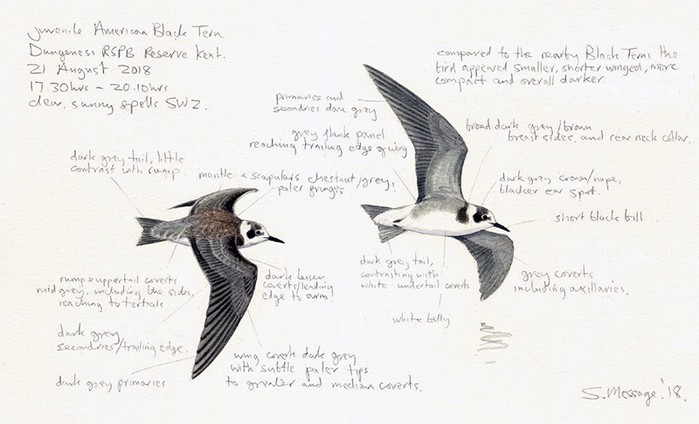 juvenile American Black Tern.
Dungeness RSPB Reserve Kent.
21 August 2018
17.30hrs - 20.10hrs
clear, sunny spells SW2.
compared to the nearby Black Terns the
bird appeared smaller, shorter winged, more
compact and overall darker
primaries and
secondries dark grey
grey flank panel
reaching trailing edge of wing
broad dark grey/brown
breast sides, and rear neck collar.
dark grey tail, little
contrast with rump.
mantle & scapulars chestnut/grey,
paler fringes
dark grey crown/nape,
blacker ear spot.
short black bill
rump & uppertail coverts
mid grey, including the sides,
reaching to tertials
dark lesser
coverts/leading
edge to arm!
dark grey tail,
contrasting with
white undertail coverts
grey coverts
including axillaries.
white belly
dark grey
secondries/trailing edge.
dark grey primaries
wing coverts dark grey
with subtle paler tips
to greater and median coverts.
S. Message '18.